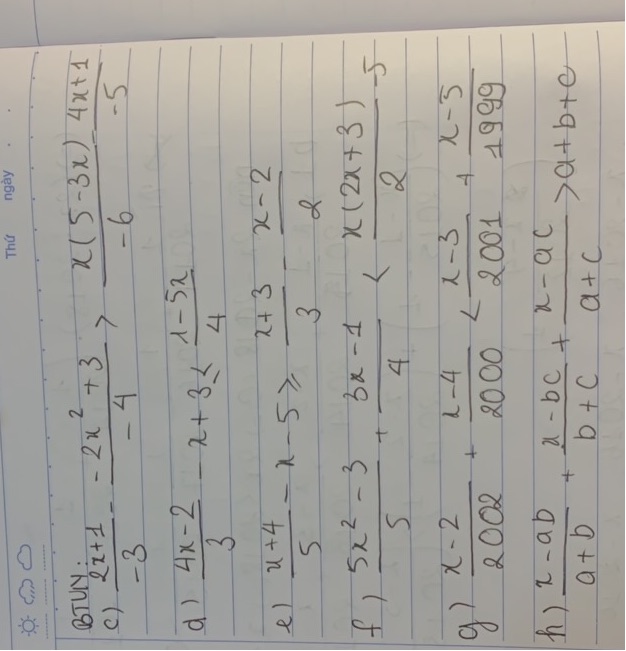 Thứ ngày
BTVN:
c) (2x+1)/(-3) - (-2x² + 3)/(-4) > (x(5-3x))/(-6) - (4x+1)/(-5)
d) (4x-2)/3 - x + 3 ≤ (1-5x)/4
e) (x+4)/5 - x - 5 ≥ (x+3)/3 - (x-2)/2
f) (5x² - 3)/5 + (3x-1)/4 < (x(2x+3))/2 - 5
g) (x-2)/2002 + (x-4)/2000 < (x-3)/2001 + (x-5)/1999
h) (x-ab)/(a+b) + (x-bc)/(b+c) + (x-ac)/(a+c) > a+b+c